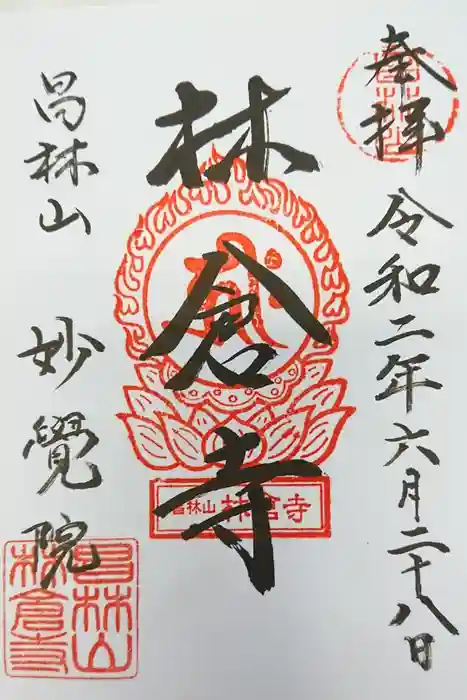 奉拝
令和二年六月二十八日
林倉寺
昌林山
林倉寺
昌林山 妙覺院
昌林山
林倉寺